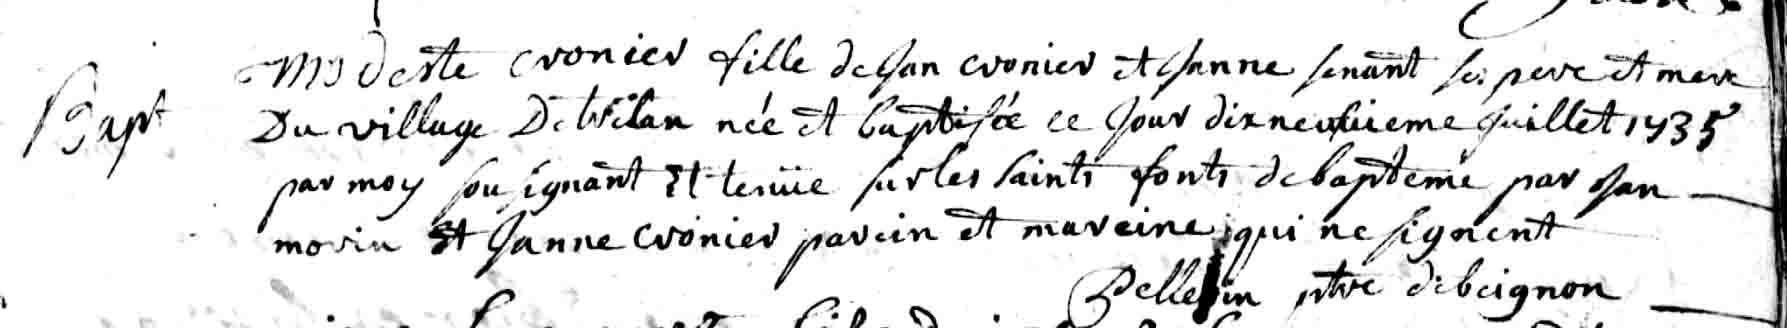 Modeste cronier fille de Jan cronier et Janne senant ses pere et mere
Bapt
Du village De trelan née et baptisée ce Jour dixneuvieme Juillet 1735
par moy sousignant Et tenüe sur les saints fonts de bapteme par Jan
morin Et Janne cronier parein et mareine qui ne signent
Pellerin ptre de beignon